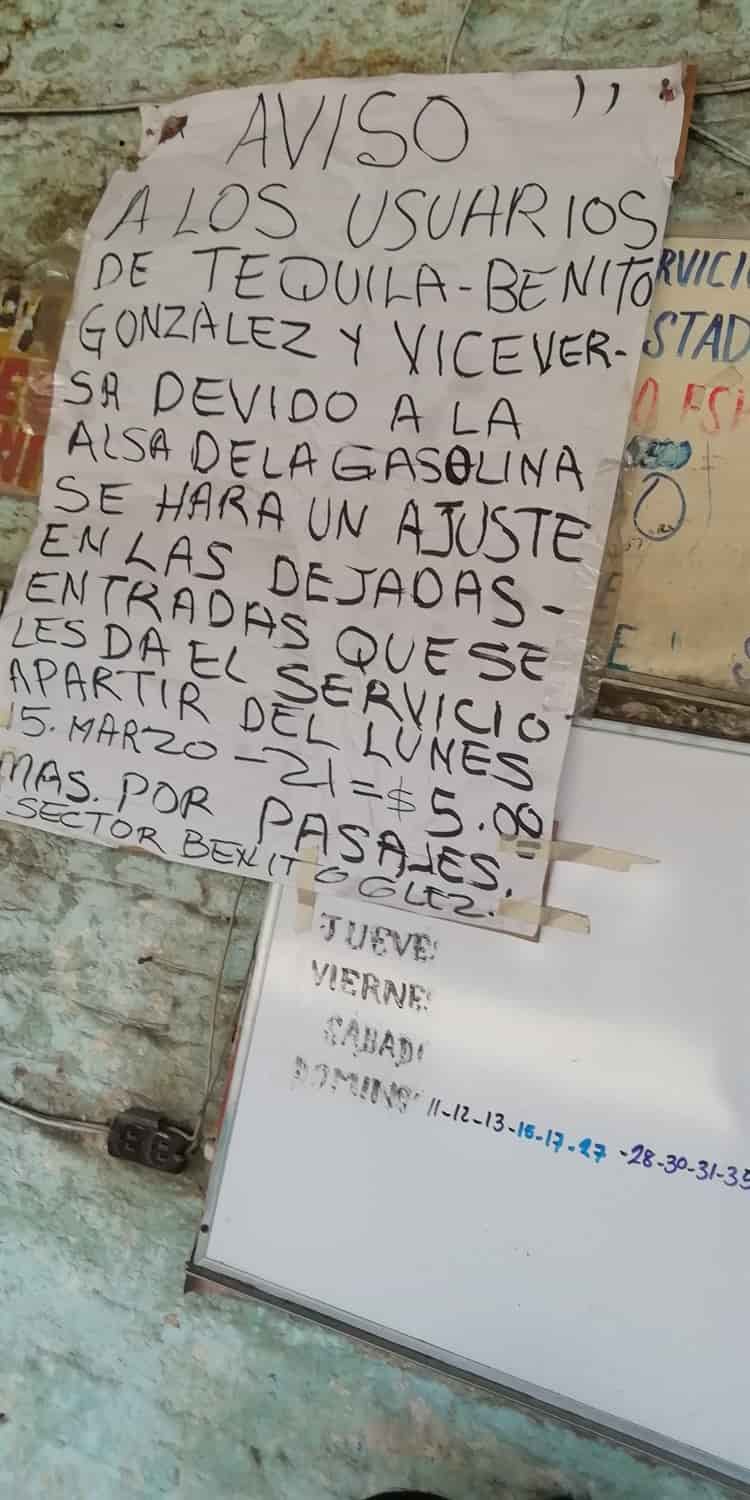 AVISO ,,
A LOS USUARIOS
DE TEQUILA-BENITO
GONZALEZ Y VICEVER-
SA DEVIDO A LA
ALSA DE LA GASOLINA
SE HARA UN AJUSTE
EN LAS DEJADAS-
ENTRADAS QUE SE
LES DA EL SERVICIO
APARTIR DEL LUNES
15. MARZO - 21 = $ 5.00
MAS. POR PASAJES.
SECTOR BENITO GLEZ.
RVICI
STAD
JUEVE
VIERNE
SÁBAD
DOMING 11-12-13-16-17-27-28-30-31-35